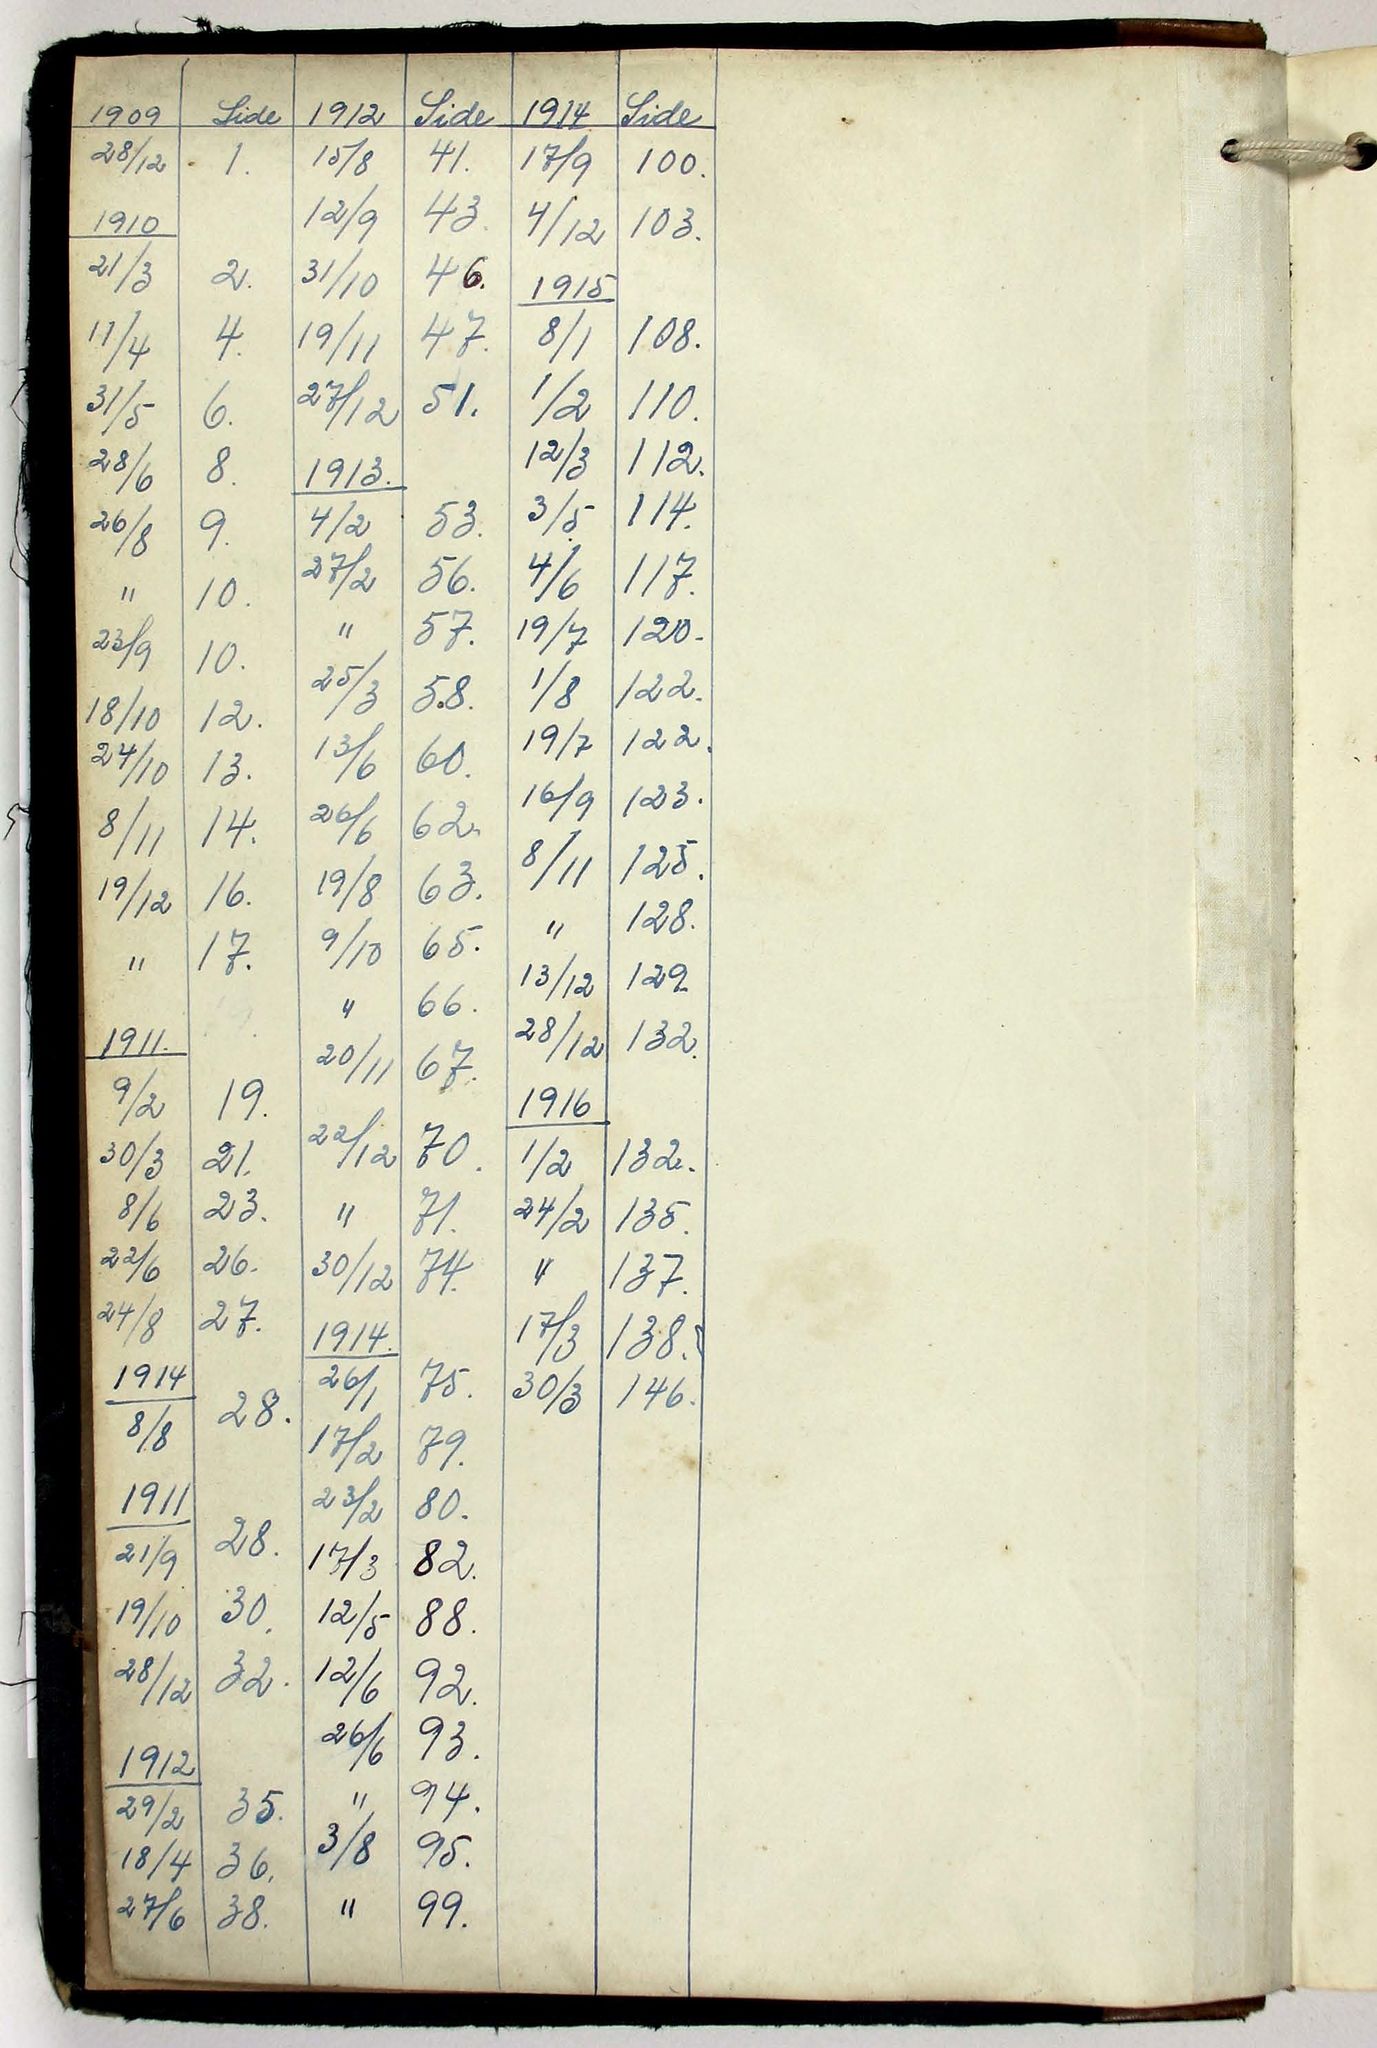 1909 Side
28/12 1.
1910
21/3 2.
11/4 4.
31/5 6.
28/6 8.
26/8 9.
" 10.
23/9 10.
18/10 12.
24/10 13.
8/11 14.
19/12 16.
" 17.
1911.
9/2 19.
30/3 21.
8/6 23.
22/6 26.
24/8 27.
1914
8/8 28.
1911
21/9 28.
19/10 30.
28/12 32.
1912
29/2 35.
18/4 36.
27/6 38.
1912 Side
15/8 41.
12/9 43.
31/10 46.
19/11 47.
27/12 51.
1913.
4/2 53.
27/2 56.
" 57.
25/3 58.
13/6 60.
26/6 62.
19/8 63.
9/10 65.
" 66.
20/11 67.
22/12 70.
" 71.
30/12 74.
1914.
26/1 75.
17/2 79.
23/2 80.
17/3 82.
12/5 88.
12/6 92.
26/6 93.
" 94.
3/8 95.
" 99.
1914 Side
17/9 100.
4/12 103.
1915
8/1 108.
1/2 110.
12/3 112.
3/5 114.
4/6 117.
19/7 120.
1/8 122.
19/7 122.
16/9 123.
8/11 125.
" 128.
13/12 129.
28/12 132.
1916
1/2 132.
24/2 135.
" 137.
17/3 138.
30/3 146.